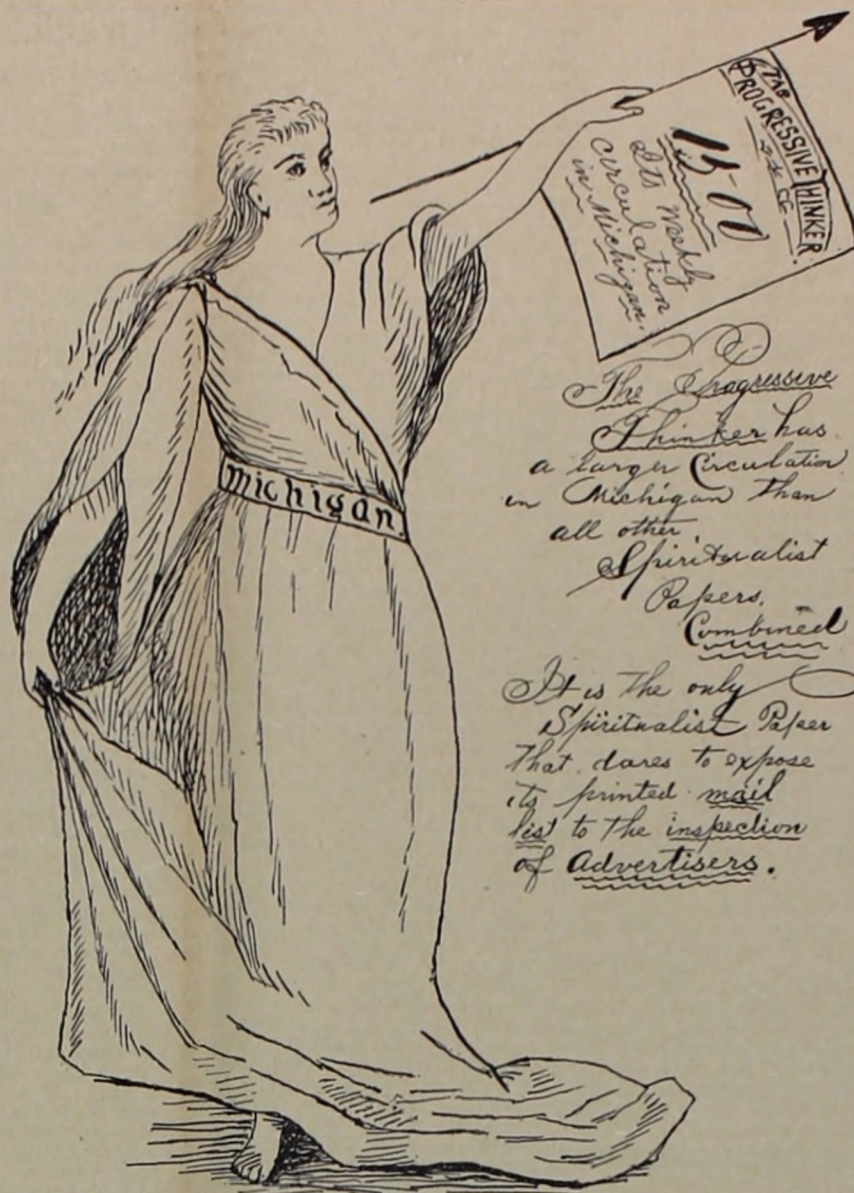 THE
PROGRESSIVE THINKER
1500
Its Weekly
circulation
in Michigan.
michigan
The Progressive
Thinker has
a larger Circulation
in Michigan Than
all other
Spiritualist
Papers.
Combined
It is the only
Spiritualist Paper
That dares to expose
its printed mail
list to the inspection
of Advertisers.